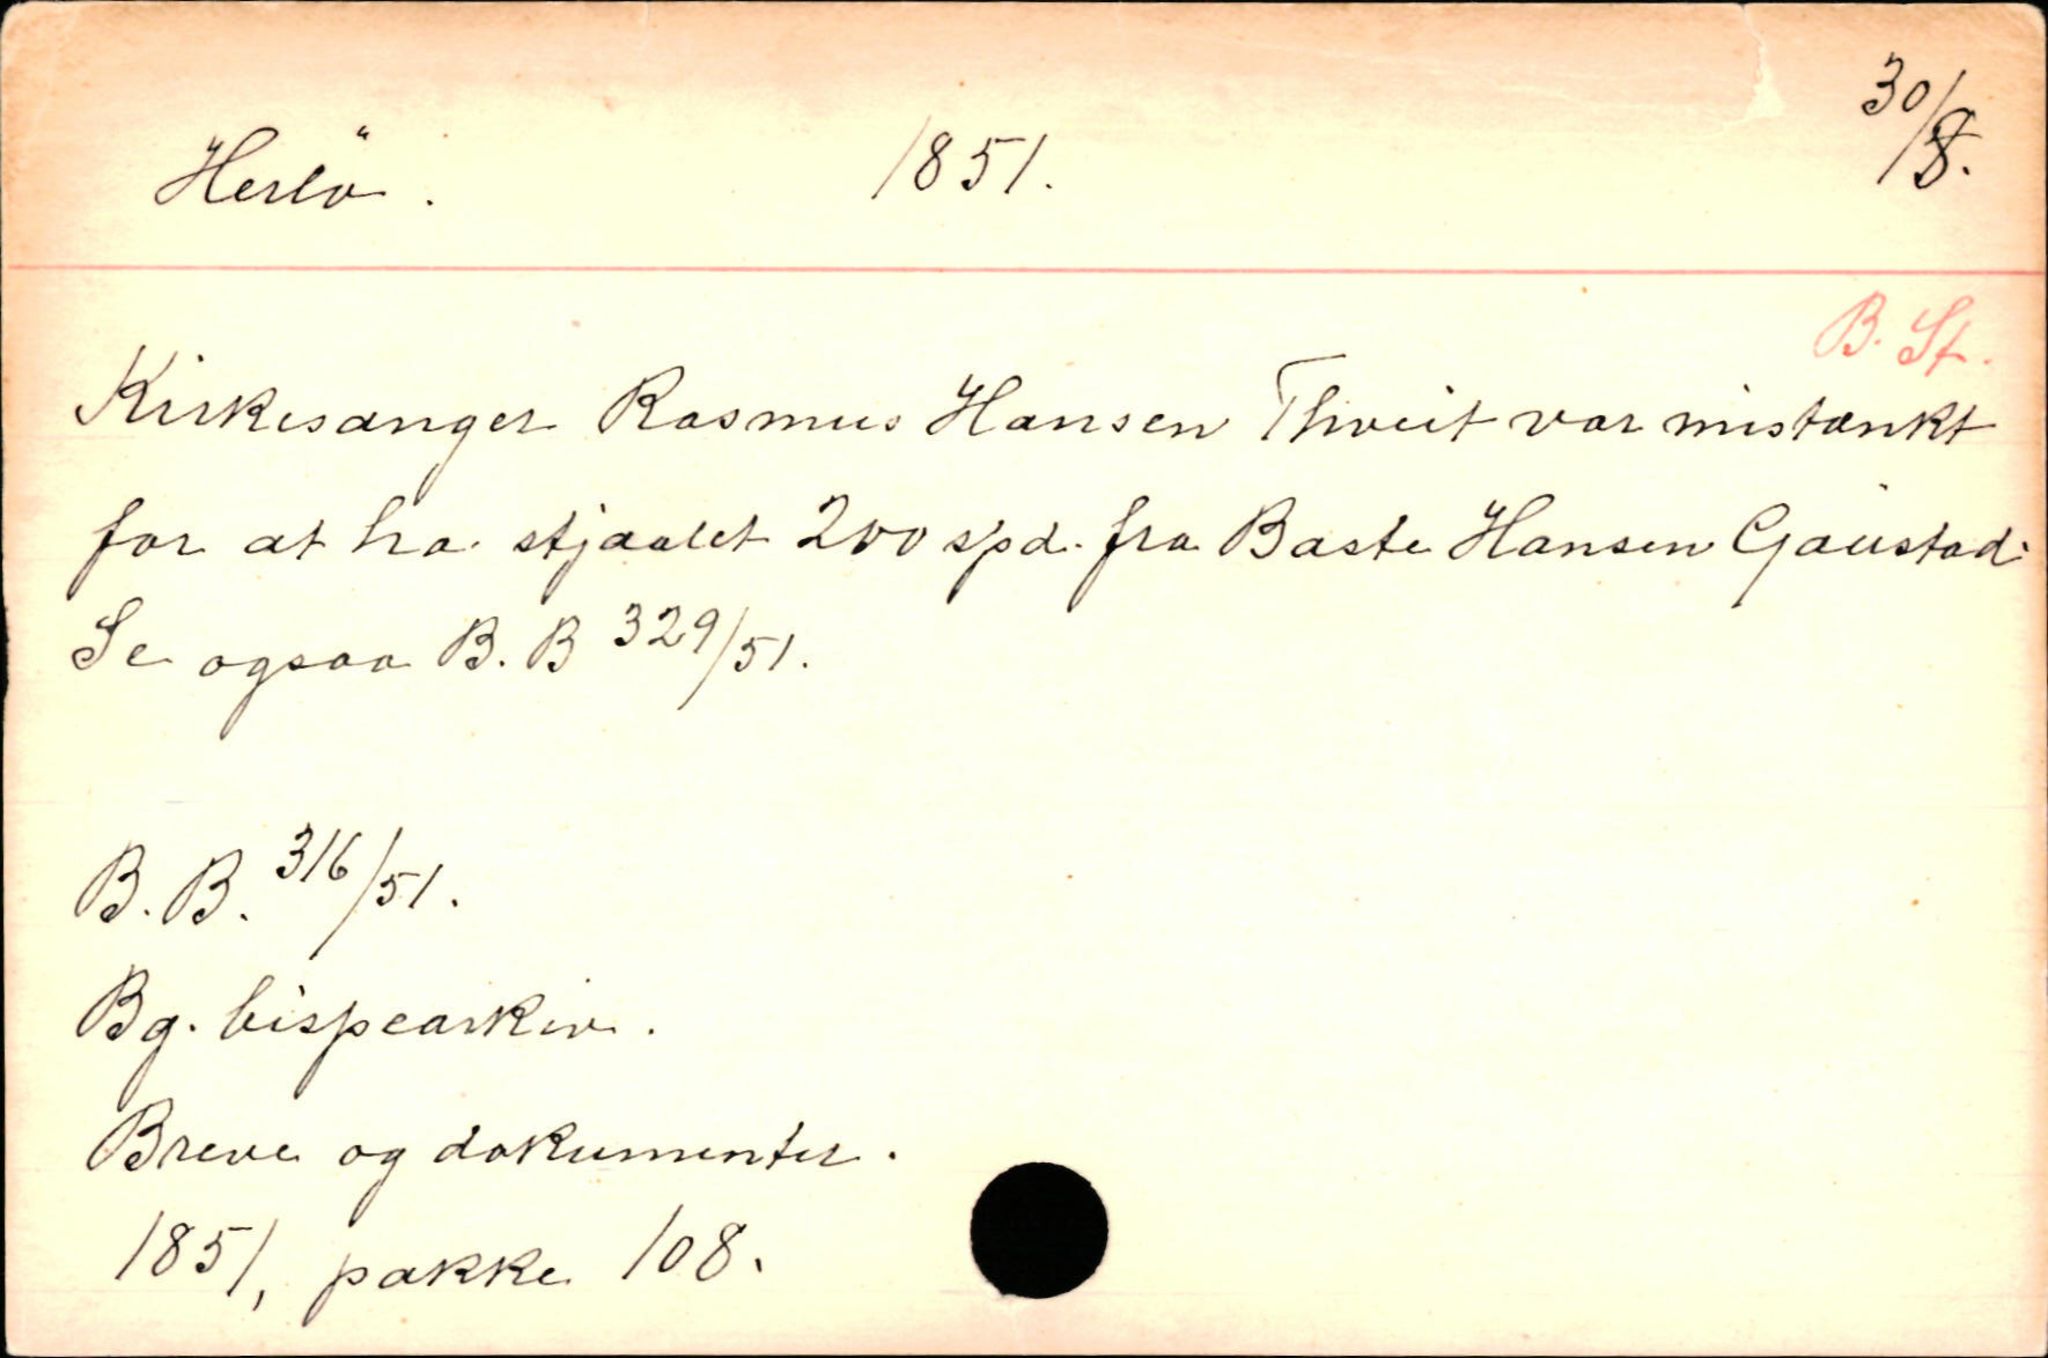 Herlö. 1851. 30/8.
B. St.
Kirkesanger Rasmus Hansen Thveit var mistænkt
for at ha stjaalet 200 spd. fra Baste Hansen Gaustad.
Se ogsaa B. B 329/51.
B. B. 316/51.
Bg. bispearkiv.
Breve og dokumenter.
1851, pakke 108.